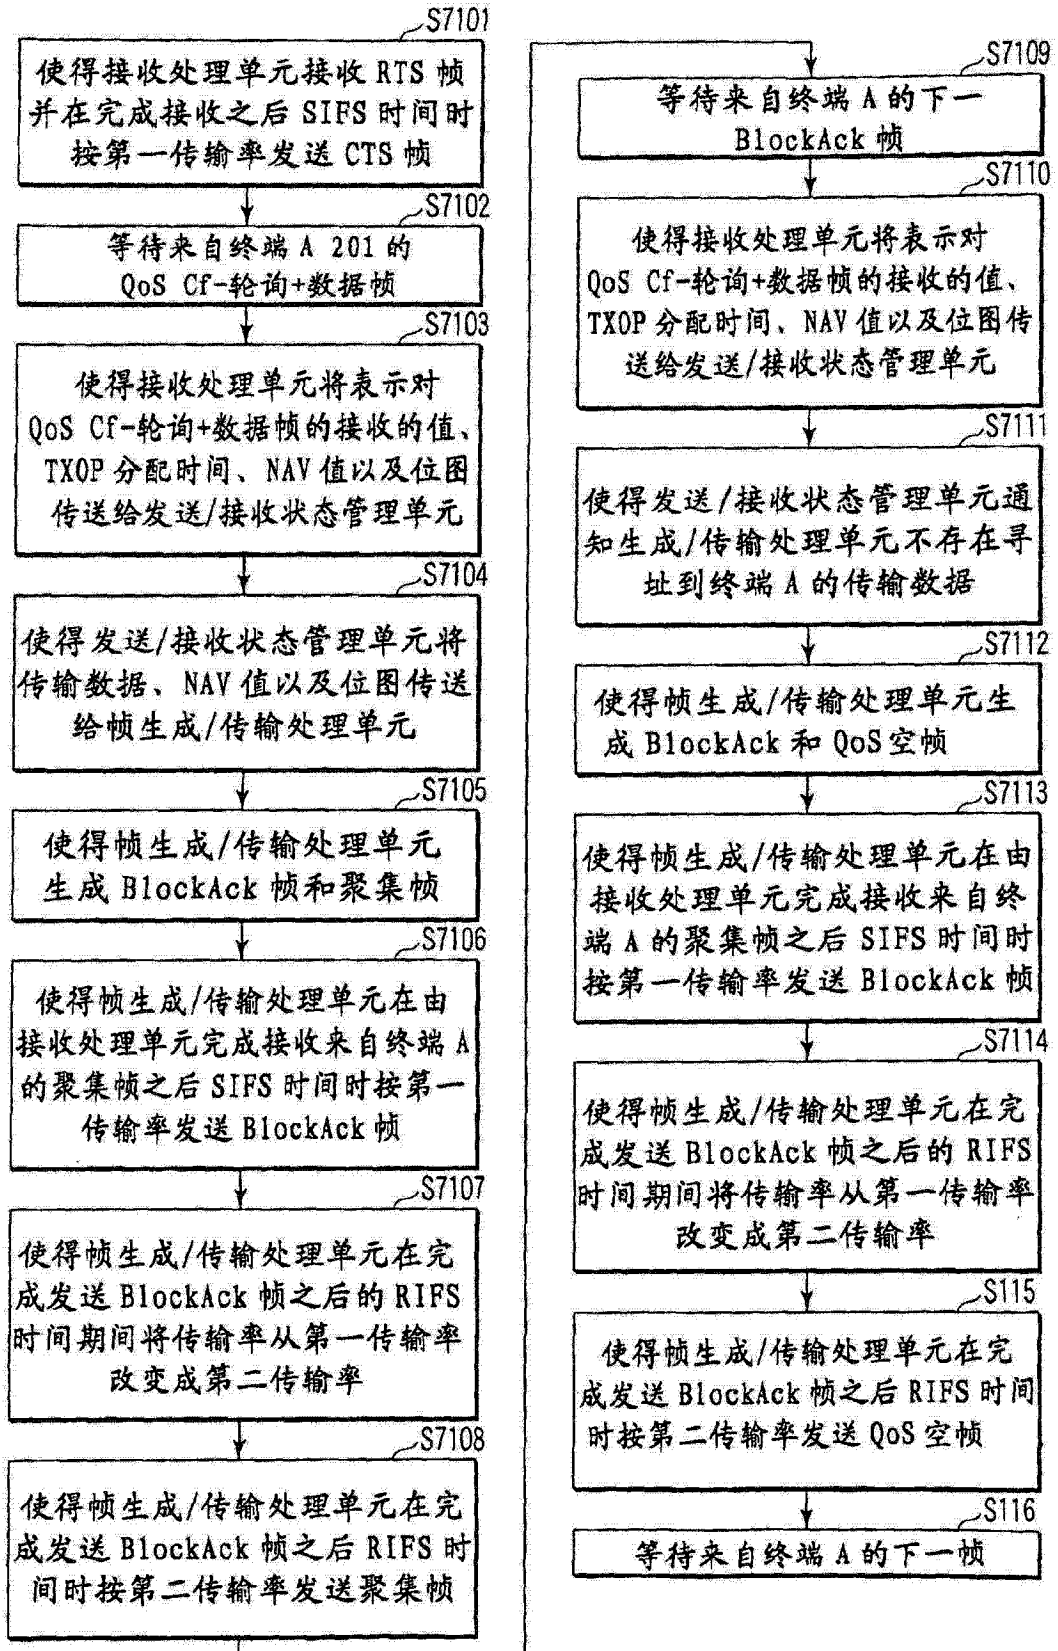 S7101
使得接收处理单元接收 RTS 帧
并在完成接收之后 SIFS 时间时
按第一传输率发送 CTS 帧
S7102
等待来自终端 A 201 的
QoS Cf-轮询+数据帧
S7103
使得接收处理单元将表示对
QoS Cf-轮询+数据帧的接收的值、
TXOP 分配时间、NAV 值以及位图
传送给发送/接收状态管理单元
S7104
使得发送/接收状态管理单元将
传输数据、NAV 值以及位图传送
给帧生成/传输处理单元
S7105
使得帧生成/传输处理单元
生成 BlockAck 帧和聚集帧
S7106
使得帧生成/传输处理单元在由
接收处理单元完成接收来自终端 A
的聚集帧之后 SIFS 时间时按第一
传输率发送 BlockAck 帧
S7107
使得帧生成/传输处理单元在完
成发送 BlockAck 帧之后的 RIFS
时间期间将传输率从第一传输率
改变成第二传输率
S7108
使得帧生成/传输处理单元在完
成发送 BlockAck 帧之后 RIFS 时
间时按第二传输率发送聚集帧
S7109
等待来自终端 A 的下一
BlockAck 帧
S7110
使得接收处理单元将表示对
QoS Cf-轮询+数据帧的接收的值、
TXOP 分配时间、NAV 值以及位图传
送给发送/接收状态管理单元
S7111
使得发送/接收状态管理单元通
知生成/传输处理单元不存在寻
址到终端 A 的传输数据
S7112
使得帧生成/传输处理单元生
成 BlockAck 和 QoS 空帧
S7113
使得帧生成/传输处理单元在由
接收处理单元完成接收来自终
端 A 的聚集帧之后 SIFS 时间时
按第一传输率发送 BlockAck 帧
S7114
使得帧生成/传输处理单元在完
成发送 BlockAck 帧之后的 RIFS
时间期间将传输率从第一传输率
改变成第二传输率
S115
使得帧生成/传输处理单元在完
成发送 BlockAck 帧之后 RIFS 时间
时按第二传输率发送 QoS 空帧
S116
等待来自终端 A 的下一帧